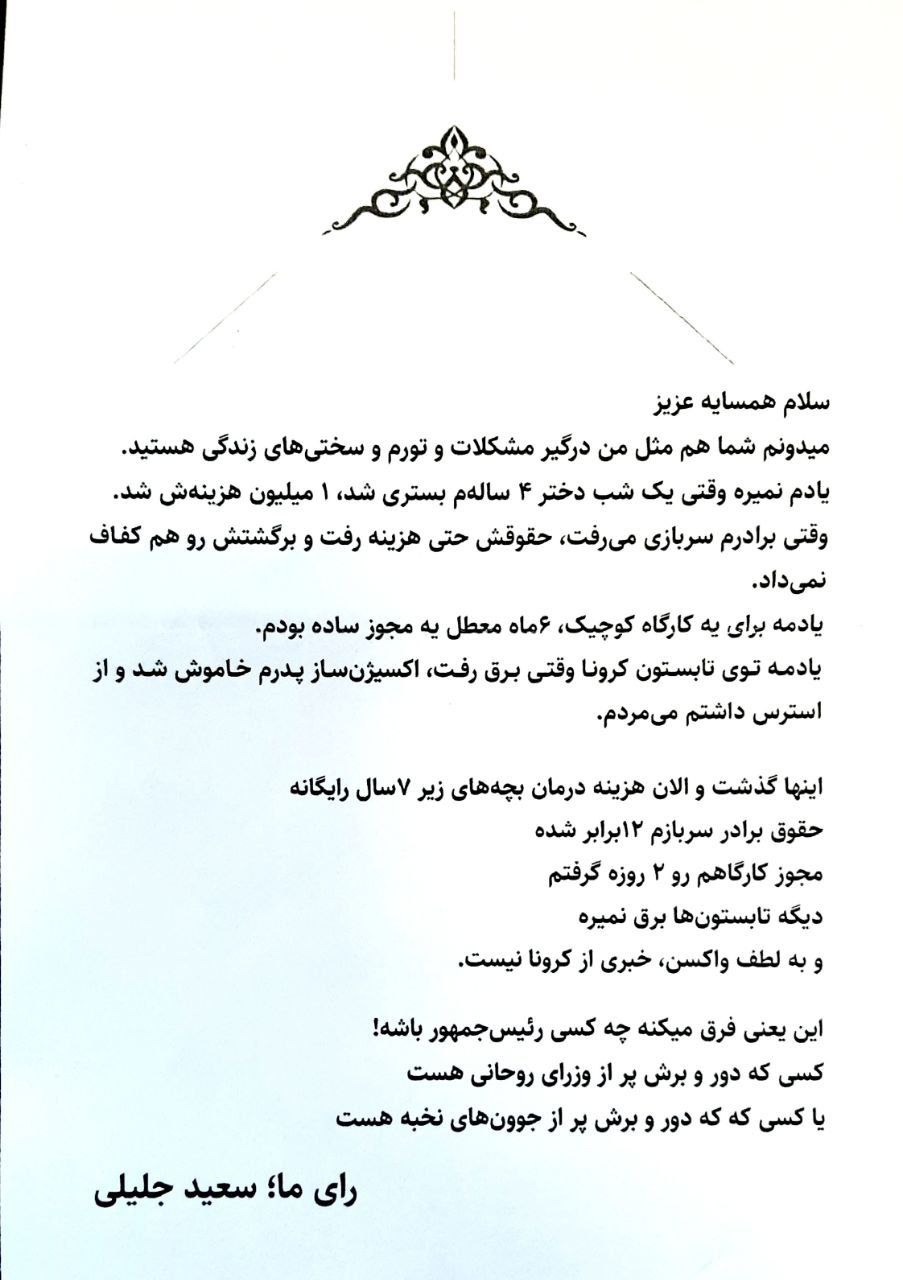 سلام همسایه عزیز
میدونم شما هم مثل من درگیر مشکلات و تورم و سختی‌های زندگی هستید.
یادم نمیره وقتی یک شب دختر ۴ ساله‌م بستری شد، ۱ میلیون هزینه‌ش شد.
وقتی برادرم سربازی می‌رفت، حقوقش حتی هزینه رفت و برگشتش رو هم کفاف
نمی‌داد.
یادمه برای یه کارگاه کوچیک، ۶ماه معطل یه مجوز ساده بودم.
یادمه توی تابستون کرونا وقتی برق رفت، اکسیژن‌ساز پدرم خاموش شد و از
استرس داشتم می‌مردم.
اینها گذشت و الان هزینه درمان بچه‌های زیر ۷سال رایگانه
حقوق برادر سربازم ۱۲برابر شده
مجوز کارگاهم رو ۲ روزه گرفتم
دیگه تابستون‌ها برق نمیره
و به لطف واکسن، خبری از کرونا نیست.
این یعنی فرق میکنه چه کسی رئیس‌جمهور باشه!
کسی که دور و برش پر از وزرای روحانی هست
یا کسی که که دور و برش پر از جوون‌های نخبه هست
رای ما؛ سعید جلیلی